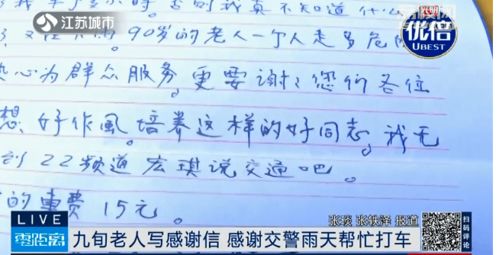 江苏城市
优倍
UBEST
90多的老人一个人走多危险
热心为群众服务。更要谢谢您们各位
想好作風。培养这样的好同志。我无
到22频道宏琪说交通吧。
的車费15元。
LIVE
零距离
报道
九旬老人写感谢信 感谢交警雨天帮忙打车
扫码评论